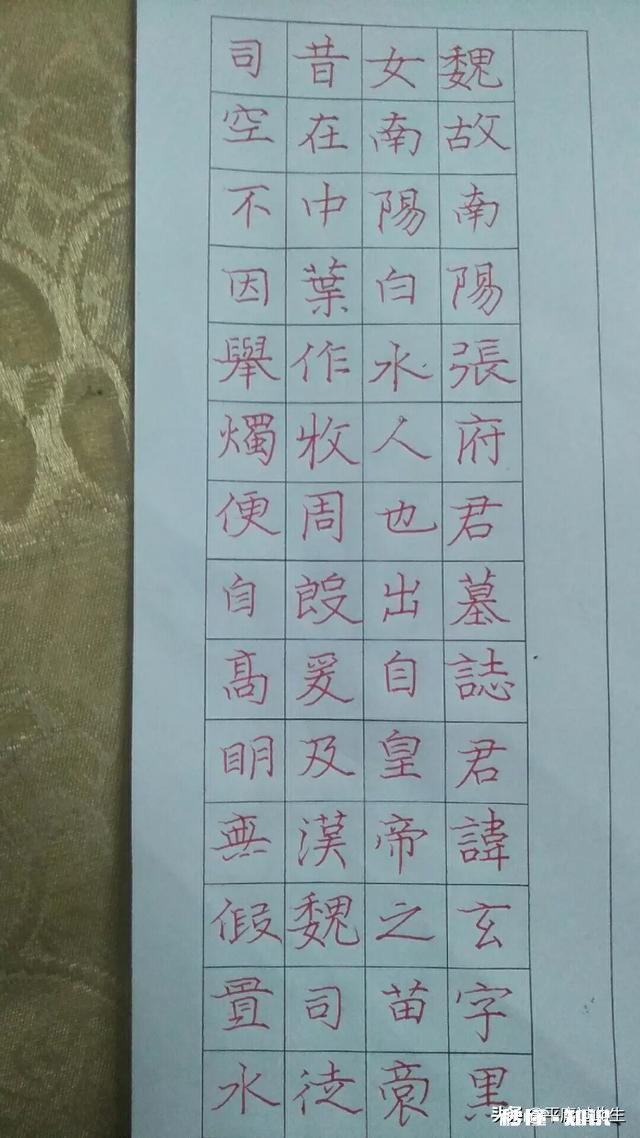 魏故南陽張府君墓誌君諱玄字黑
女南陽白水人也出自皇帝之苗裔
昔在中葉作牧周殷爰及漢魏司徒
司空不因舉燭便自高明無假置水